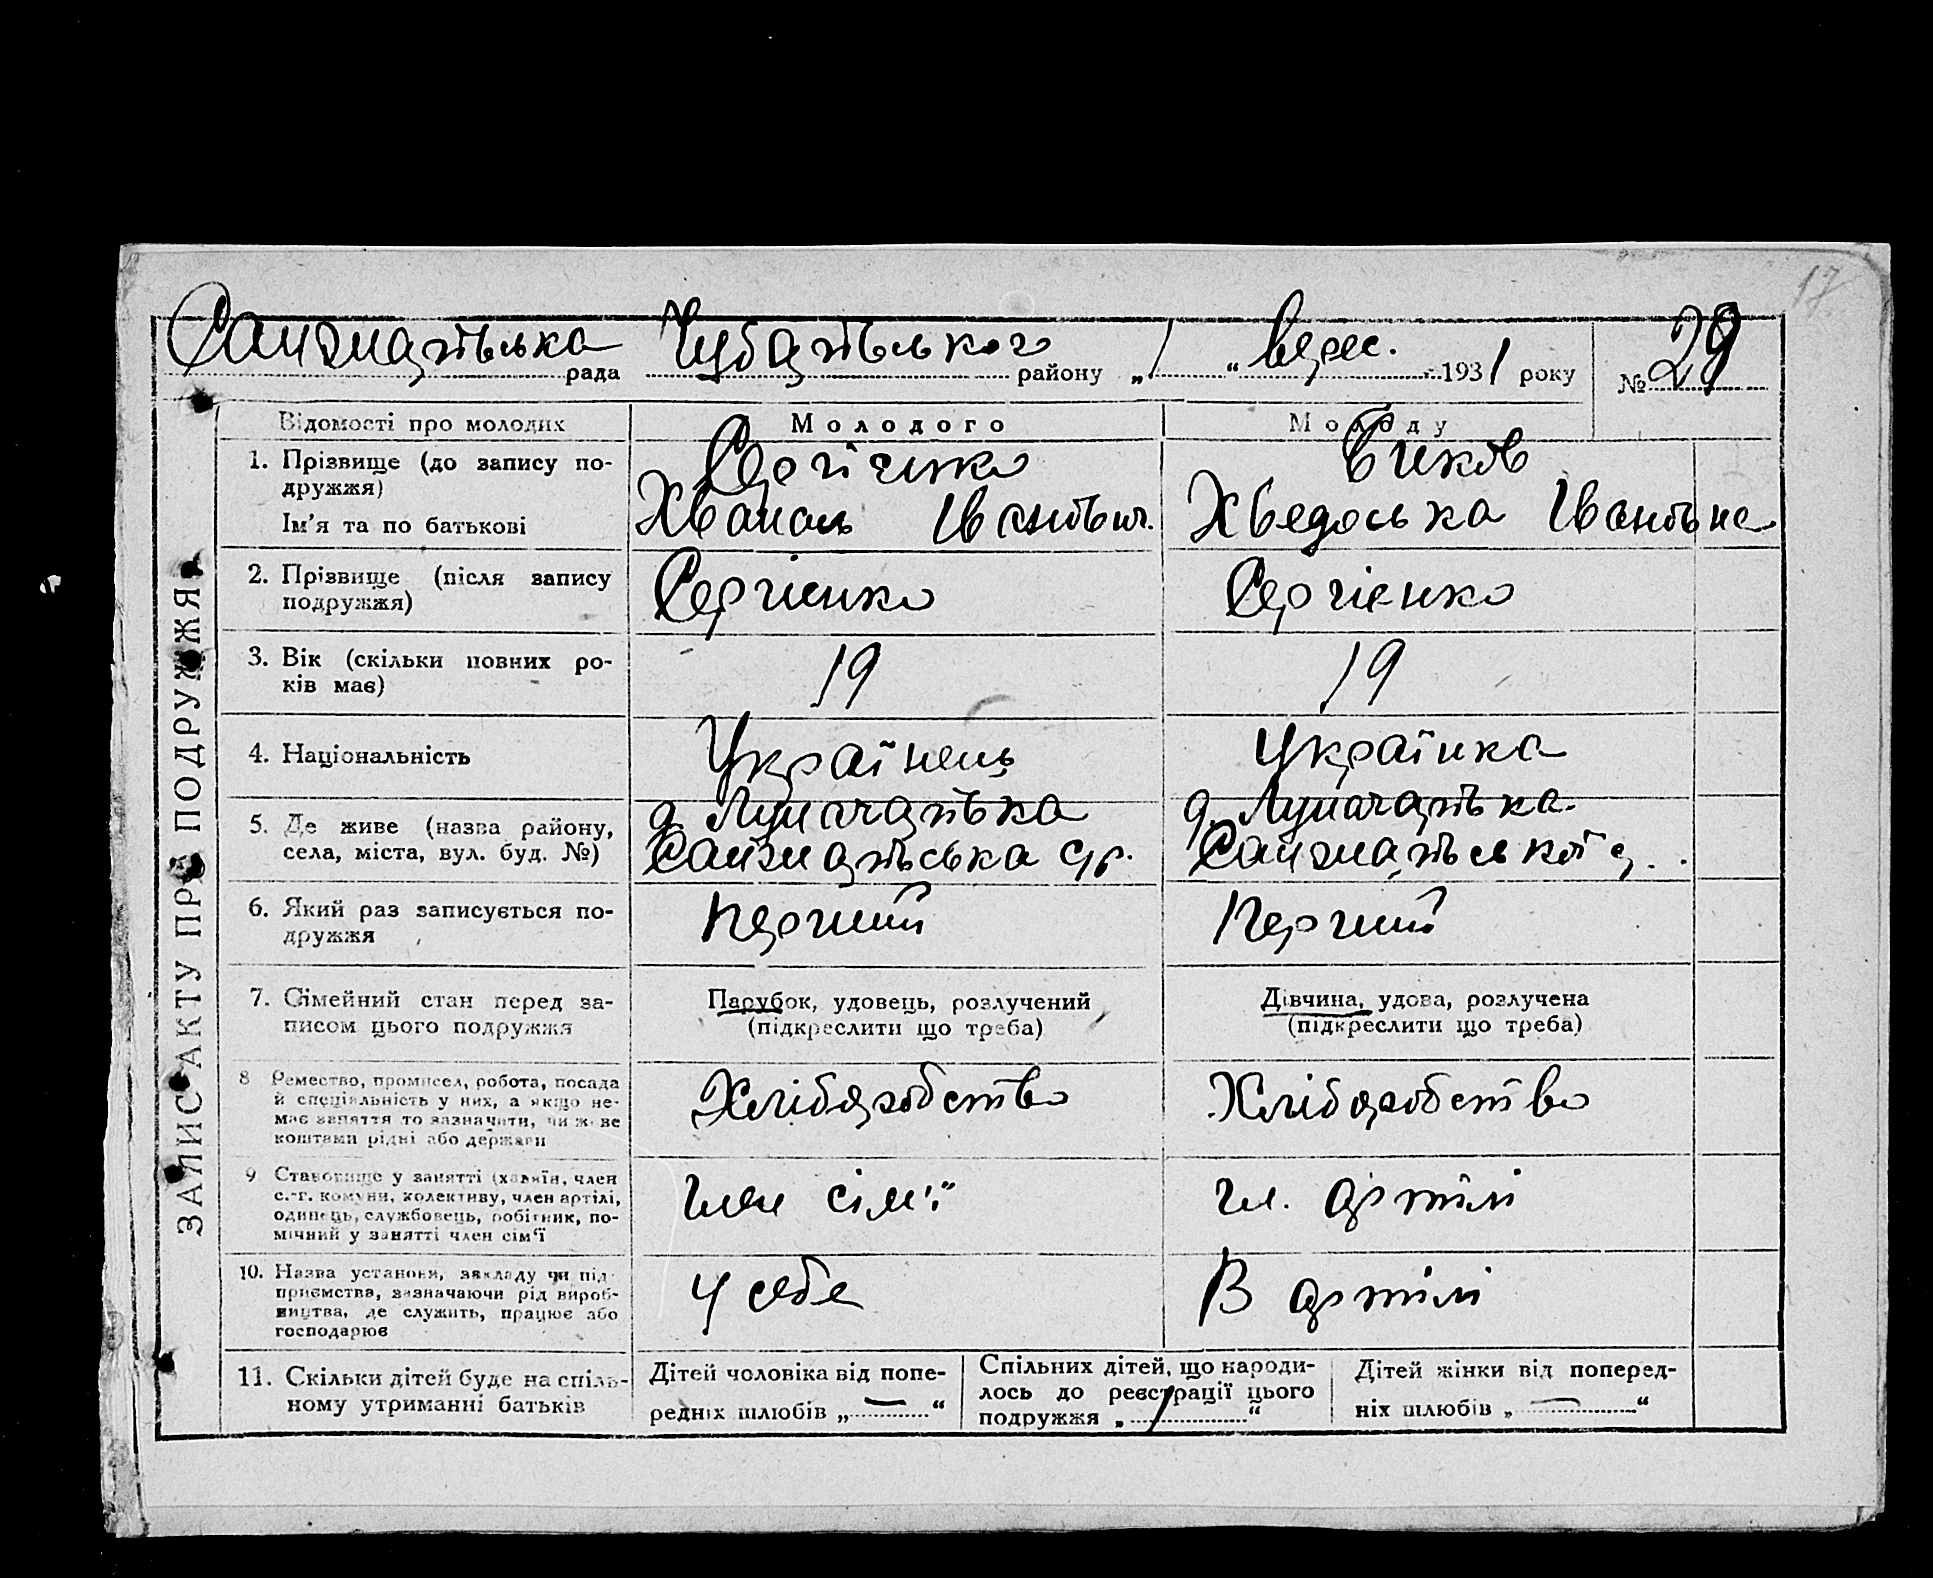 17
Санжатівська рада Чубатівського району „1“ верес. 1931 року № 29
ЗАПИС АКТУ ПРО ПОДРУЖЖЯ
Відомості про молодих
Молодого
Молоду
1. Прізвище (до запису по-
дружжя)
Ім'я та по батькові
Сергієнко
Хванась Івановіч.
Биков
Хведоська Івановна
2. Прізвище (після запису
подружжя)
Сергиенко
Сергієнко
3. Вік (скільки повних ро-
ків має)
19
19
4. Національність
Українець
Українка
5. Де живе (назва району,
села, міста, вул. буд. №)
д.
ср.
д.
6. Який раз записується по-
дружжя
Перший
Перший
7. Сімейний стан перед за-
писом цього подружжя
Парубок, удовець, розлучений
(підкреслити що треба)
Дівчина, удова, розлучена
(підкреслити що треба)
8 Ремество, промисел, робота, посада
й спеціяльність у них, а якщо не-
має заняття то зазначити, чи живе
коштами рідні або держави
Хліборобство
Хліборобство
9 Становище у занятті (хазяїн, член
с.-г. комуни, колективу, член артілі,
одинець, службовець, робітник, по-
мічний у занятті член сім'ї
член сім'ї
чл. артілі
10. Назва установи, закладу чи під-
приємства, зазначаючи рід вироб-
ництва, де служить, працює або
господарює
У себе
В артілі
11. Скільки дітей буде на спіль-
ному утриманні батьків
Дітей чоловіка від попе-
редніх шлюбів „—“
Спільних дітей, що народи-
лось до реєстрації цього
подружжя „1“
Дітей жінки від поперед-
ніх шлюбів „—“